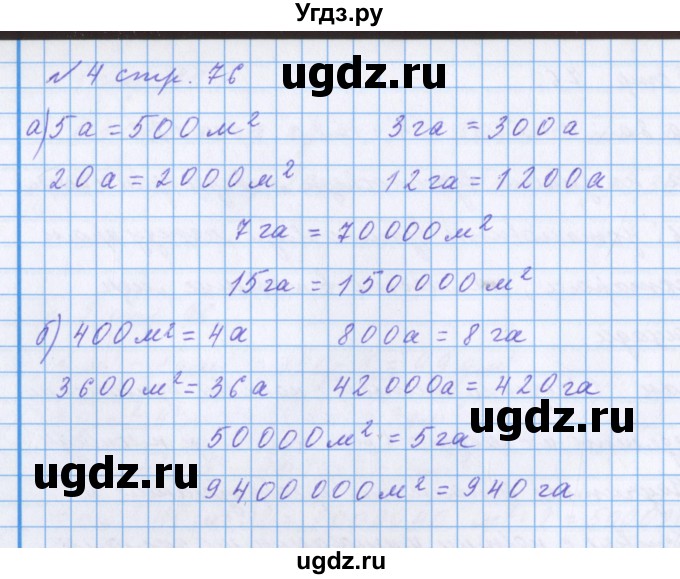 Угдз.ру
№ 4 стр. 76
ugdz.ru
а) 5а = 500 м² 3га = 300а
20а = 2000 м² 12га = 1200а
7га = 70000 м²
15га = 150000 м²
б) 400 м² = 4а 800а = 8 га
3600 м² = 36а 42000а = 420га
ugdz.ru
50000 м² = 5га
ugdz.ru
9400000 м² = 940га
ugdz.ru